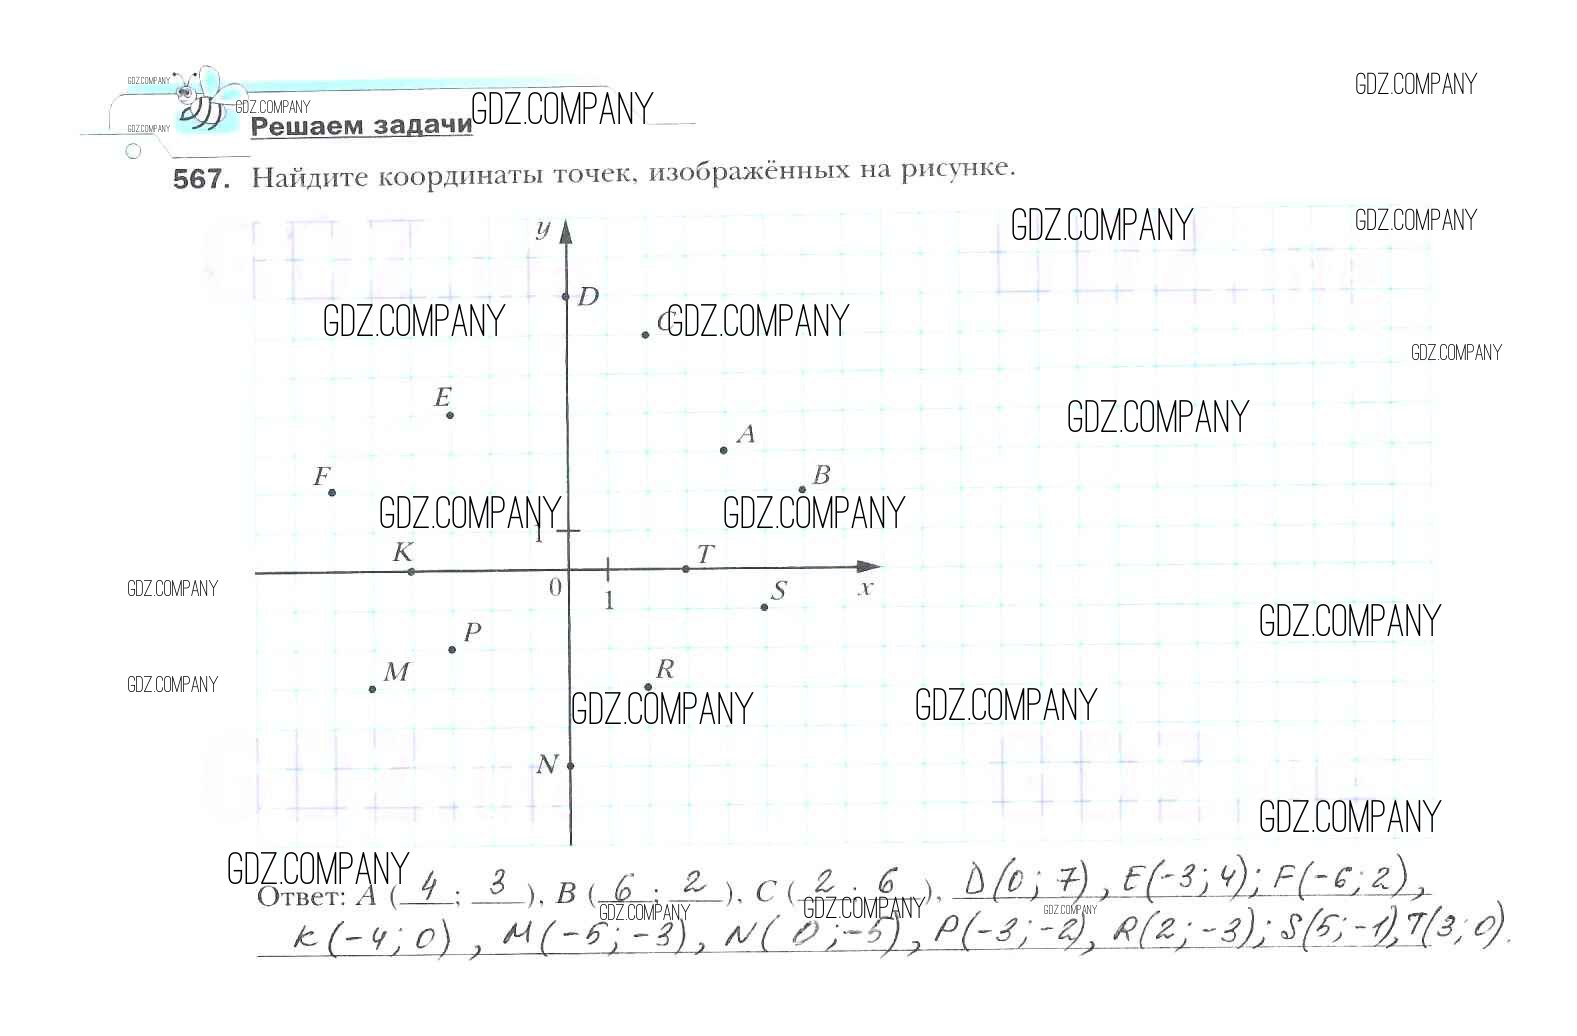 GDZ.COMPANY
GDZ.COMPANY
GDZ.COMPANY
GDZ.COMPANY
GDZ.COMPANY
Решаем задачи
567. Найдите координаты точек, изображённых на рисунке.
GDZ.COMPANY
GDZ.COMPANY
y
D
GDZ.COMPANY
C
GDZ.COMPANY
GDZ.COMPANY
E
GDZ.COMPANY
A
F
B
GDZ.COMPANY
GDZ.COMPANY
1
K
T
GDZ.COMPANY
0
1
S
x
GDZ.COMPANY
P
M
R
GDZ.COMPANY
GDZ.COMPANY
GDZ.COMPANY
N
GDZ.COMPANY
GDZ.COMPANY
Ответ: A (4; 3), B (6; 2), C (2; 6), D(0; 7), E(-3; 4); F(-6; 2),
GDZ.COMPANY
GDZ.COMPANY
GDZ.COMPANY
K(-4; 0), M(-5; -3), N(0; -5), P(-3; -2), R(2; -3); S(5; -1), T(3; 0).